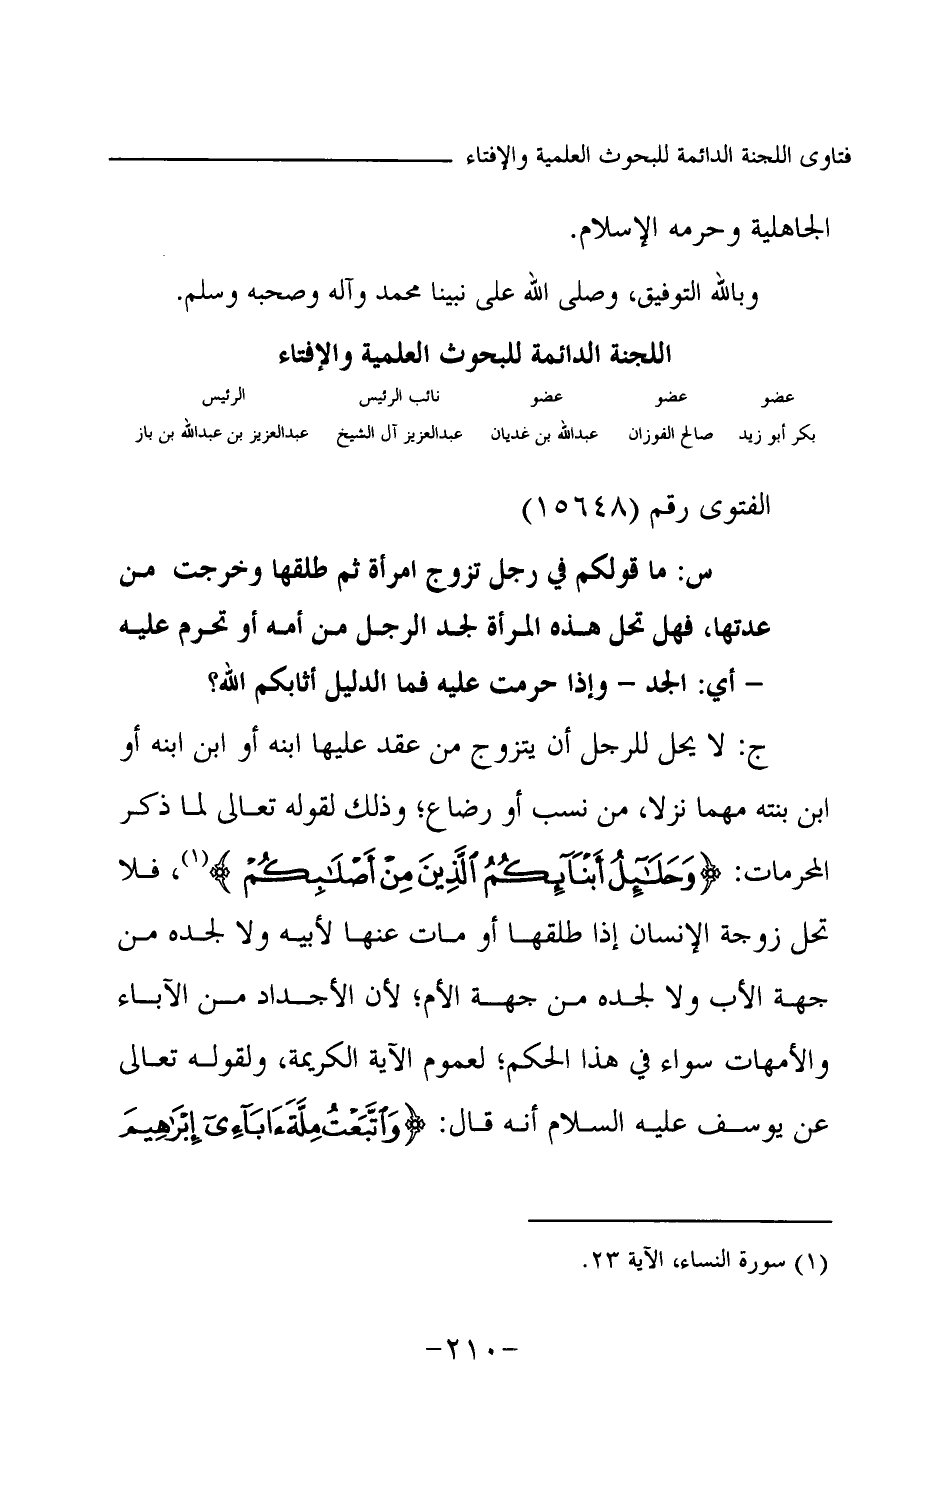 فتاوى اللجنة الدائمة للبحوث العلمية والإفتاء
الجاهلية وحرمه الإسلام.
وبالله التوفيق، وصلى الله على نبينا محمد وآله وصحبه وسلم.
اللجنة الدائمة للبحوث العلمية والإفتاء
عضو عضو عضو نائب الرئيس الرئيس
بكر أبو زيد صالح الفوزان عبدالله بن غديان عبدالعزيز آل الشيخ عبدالعزيز بن عبدالله بن باز
الفتوى رقم (١٥٦٤٨)
س: ما قولكم في رجل تزوج امرأة ثم طلقها وخرجت من
عدتها، فهل تحل هذه المرأة لجد الرجل من أمه أو تحرم عليه
– أي: الجد – وإذا حرمت عليه فما الدليل أثابكم الله؟
ج: لا يحل للرجل أن يتزوج من عقد عليها ابنه أو ابن ابنه أو
ابن بنته مهما نزلا، من نسب أو رضاع؛ وذلك لقوله تعالى لما ذكر
المحرمات: ﴿وَحَلَٰٓئِلُ أَبْنَآئِكُمُ ٱلَّذِينَ مِنْ أَصْلَٰبِكُمْ﴾(١)، فلا
تحل زوجة الإنسان إذا طلقها أو مات عنها لأبيه ولا لجده من
جهة الأب ولا لجده من جهة الأم؛ لأن الأجداد من الآباء
والأمهات سواء في هذا الحكم؛ لعموم الآية الكريمة، ولقوله تعالى
عن يوسف عليه السلام أنه قال: ﴿وَٱتَّبَعْتُ مِلَّةَ ءَابَآءِىٓ إِبْرَٰهِيمَ
(١) سورة النساء، الآية ٢٣.
–٢١٠–